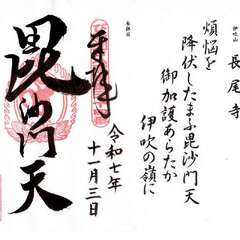 伊吹山
長尾寺
煩悩を
降伏したまふ毘沙門天
御加護あらたか
伊吹の嶺に
奉拝
令和七年
十一月三日
毘沙門天